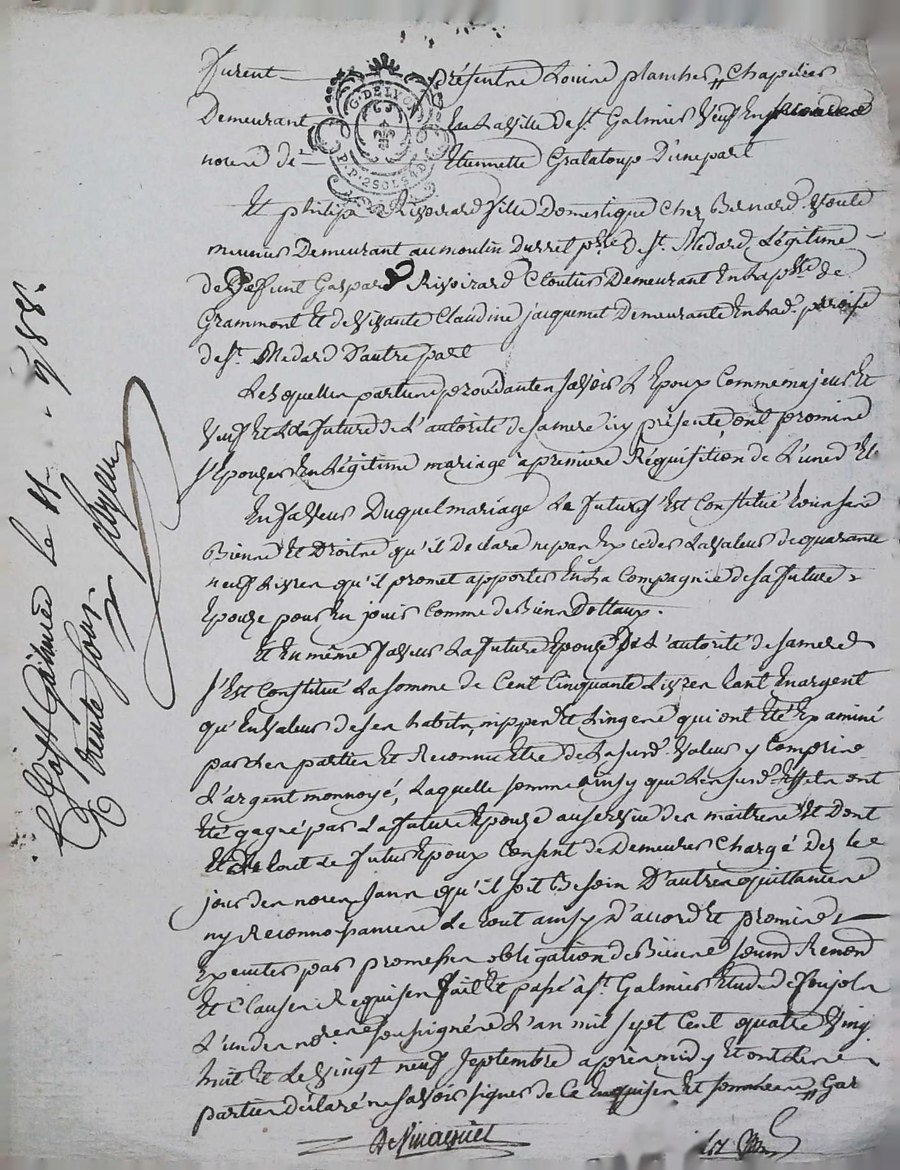 furent présents Louis plancher, Chapelier
Demeurant En La Ville de St. Galmier Veuf En secondes
noces de Etiennette Gralatoup D'une part
G. DE LYON
P. P. 2 SOLS 4 D.
Et philip Rivoirard fille Domestique Chez Bernard
meunier Demeurant au moulin Durret psse de St. Medard, Légitime
de Deffunt Gaspard Rivoirard Cloutier Demeurant En La psse de
Grammont Et de Vivante Claudine jacquemet Demeurante En lad. paroisse
de St. Medard D'autre part
Lesquelles parties procedantes savoir L'Epoux Comme majeur Et
Veuf Et La future de L'autorité de sa mere icy présente ont promis
s'Epouser En Légitime mariage a premiere Réquisition de L'une d'El
En faveur Duquel mariage Le futur s'Est Constitué tous ses
Biens Et Droits qu'il Declare ne pas Exceder La valeur de quarante
neuf Livres qu'il promet apporter En La Compagnie de sa future
Epouse pour En jouir Comme de Biens Dottaux.
Et En même faveur La future Epouse De L'autorité de sa mere
s'Est Constitué La somme de Cent Cinquante Livres tant En argent
qu'En valeur de ses habits, nippes Et Linges qui ont Eté Examiné
par Les parties Et Reconnu Etre de La susd. Valeur y Compris
L'argent monnoyé, Laquelle somme ainsy que Les susd. Effets ont
Eté gagné par La future Epouse au service des maitres Et Dont
Et De tout Le futur Epoux Consent de Demeurer Chargé Dez le
jour des noces sans qu'il soit Besoin D'autres quittances
ny Reconnoissances Le tout ainsy D'accord Et promis
Executer par promesses obligation de Biens soum Renond
Et Clauses Requises fait Et passé à St. Galmier Etude de soujols
L'un des nores soussignés L'an mil sept Cent quatre Vingt
huit Et Le Vingt neuf septembre après midy Et ont Les
parties déclaré ne savoir signer de Ce Enquises Et sommées
DeVinaequier
Cé à St. Galmier le 11 - 9 - 88.
trente sous